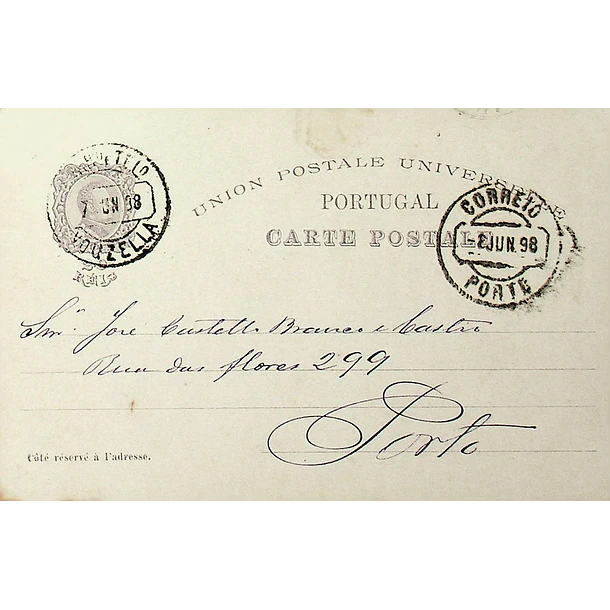 UNION POSTALE UNIVERSELLE
PORTUGAL
CARTE POSTALE
CORREIO
8 JUN. 98
PORTE
7 JUN 98
VOUZELLA
REIS
Snr. José Castello Branco e Castro
Rua das flores 299
Porto
Côté réservé à l'adresse.